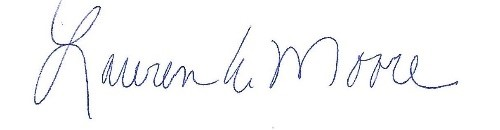 Lauren K. Moore